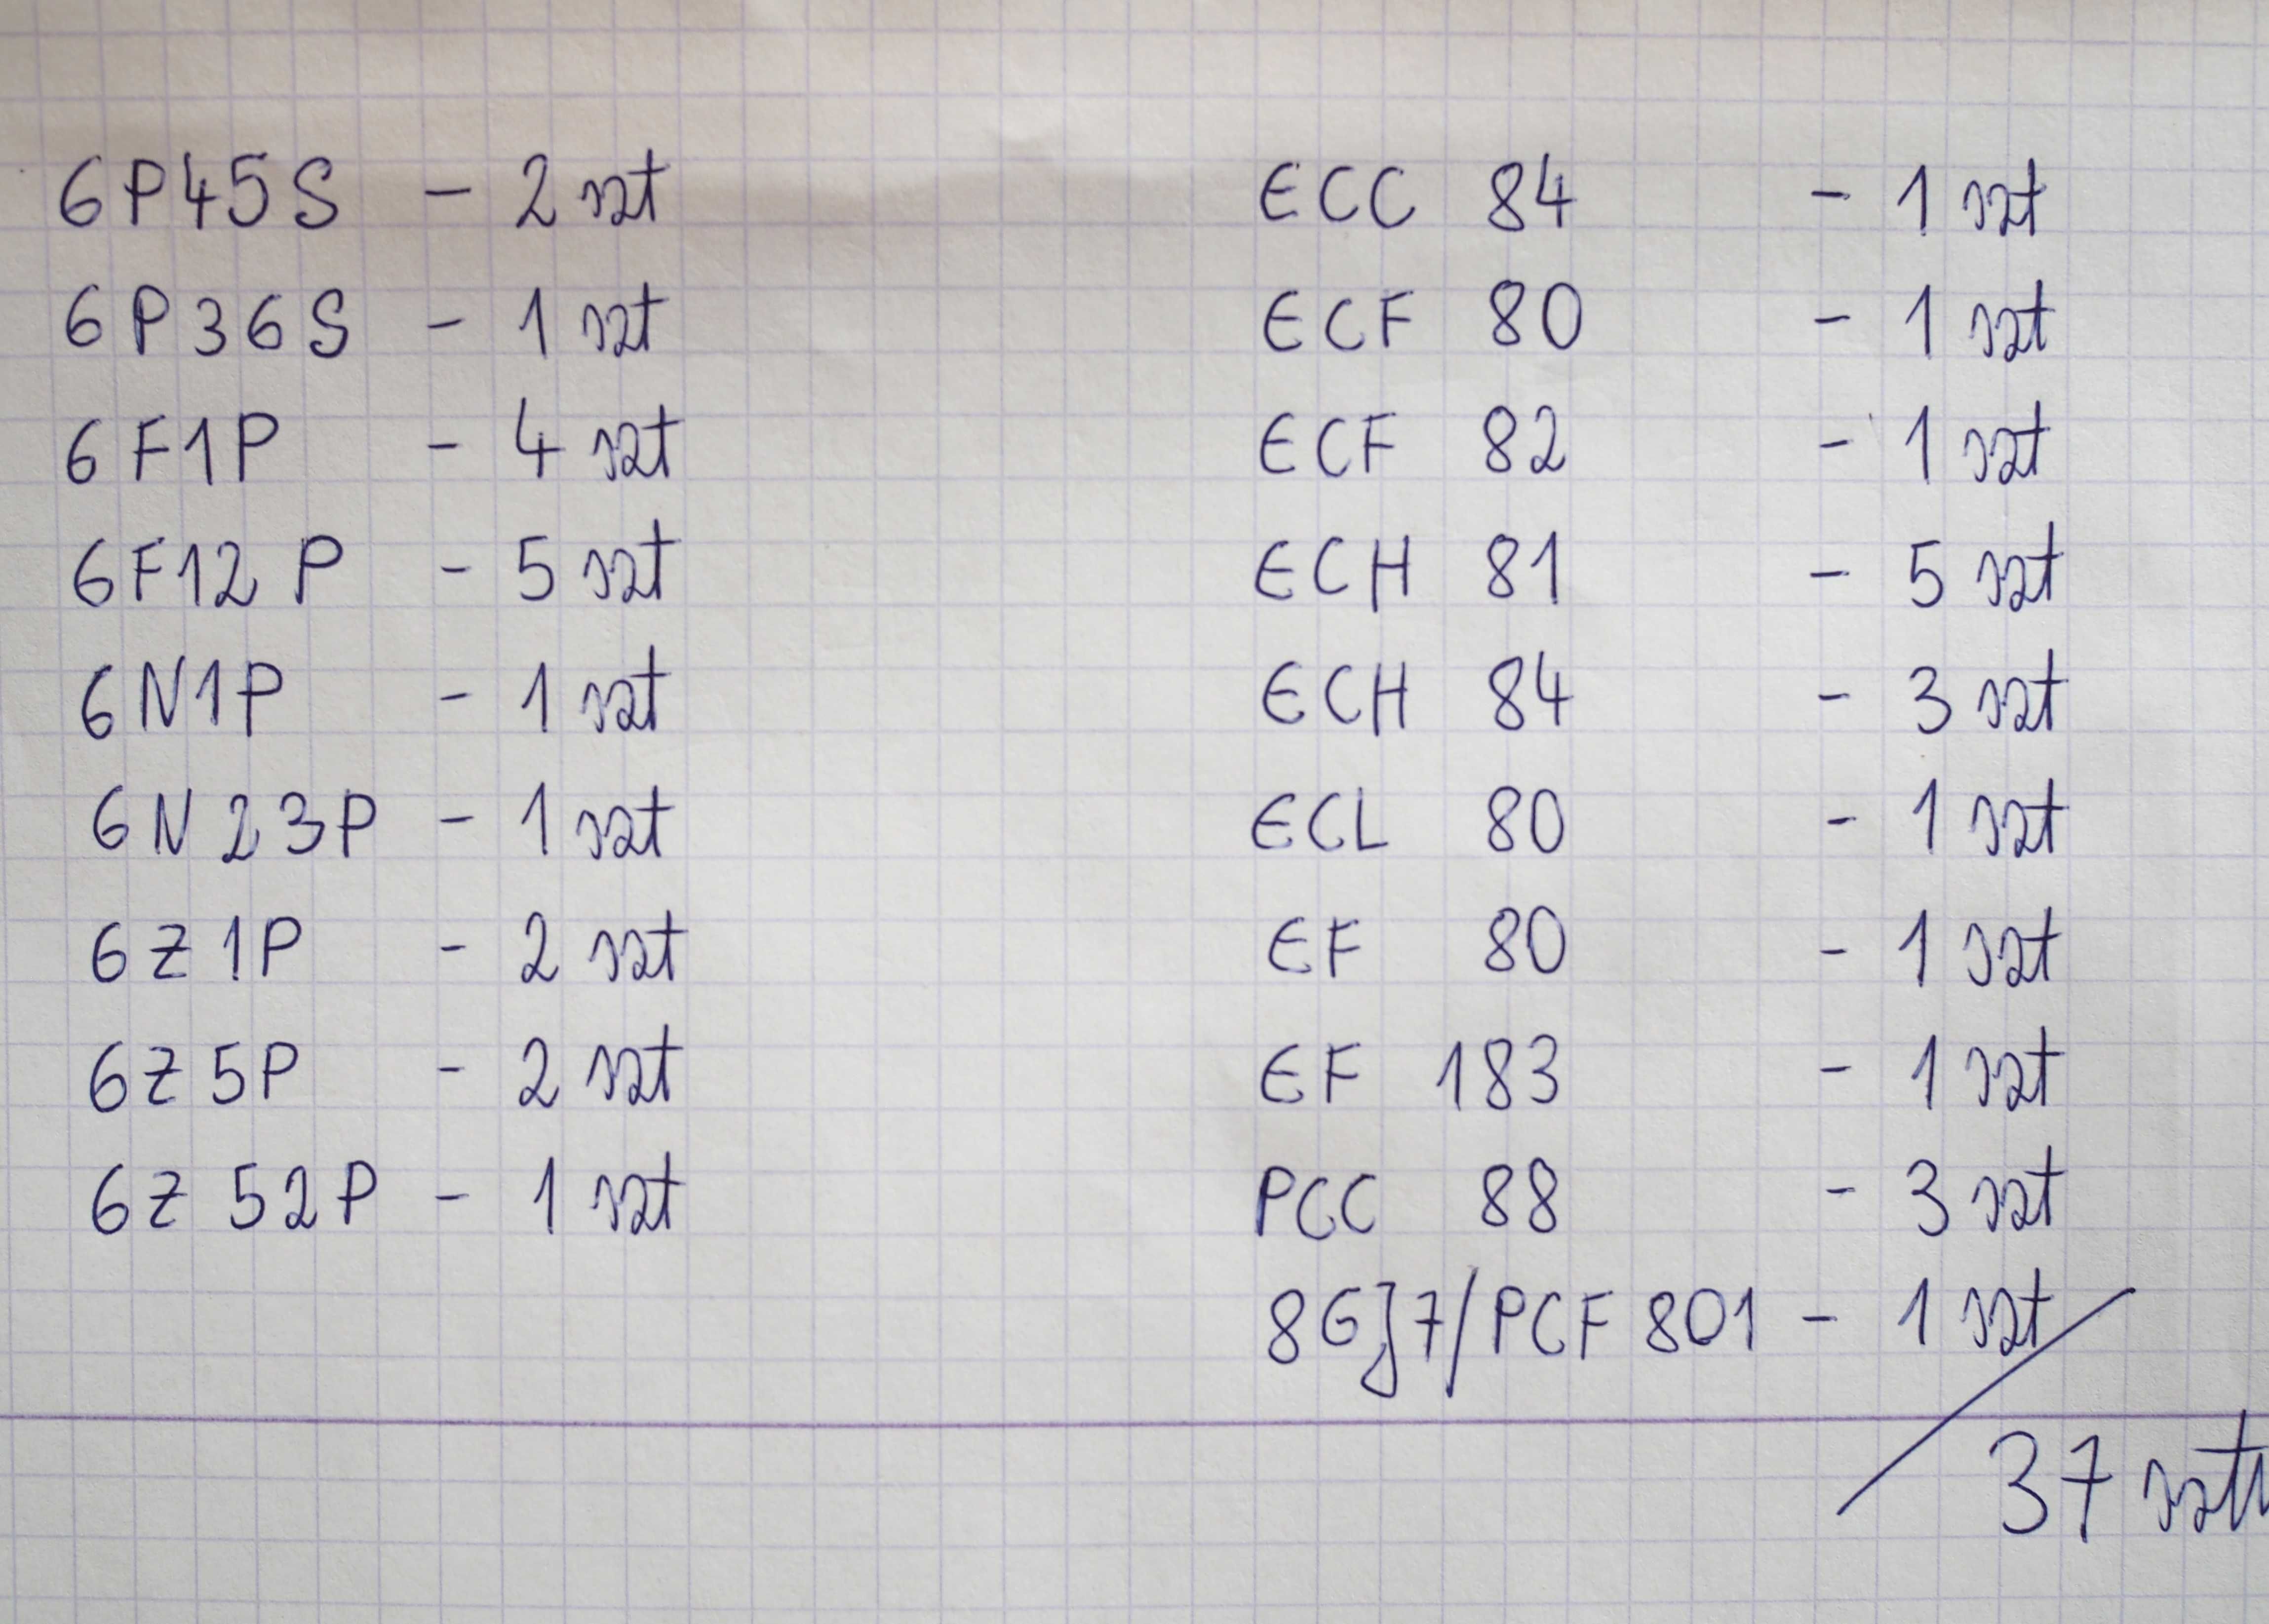 6P45S - 2 szt
6P36S - 1 szt
6F1P - 4 szt
6F12P - 5 szt
6N1P - 1 szt
6N23P - 1 szt
6Z1P - 2 szt
6Z5P - 2 szt
6Z52P - 1 szt
ECC 84 - 1 szt
ECF 80 - 1 szt
ECF 82 - 1 szt
ECH 81 - 5 szt
ECH 84 - 3 szt
ECL 80 - 1 szt
EF 80 - 1 szt
EF 183 - 1 szt
PCC 88 - 3 szt
8GJ7/PCF 801 - 1 szt
37